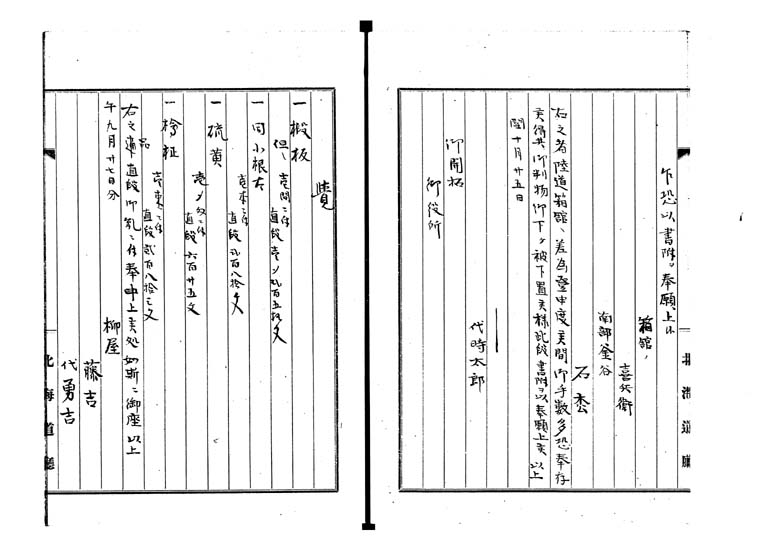 乍恐以書附奉願上候
箱館
喜兵衛
南部釜谷
石枩
右之者陸道箱館へ差為登申度奉存候間御手数多恐奉存
候得共御判物御下ケ被下置候様此段書附ヲ以奉願上候以上
閏十月廿五日
御開拓
御役所
代時太郎
北海道廳
覚
一椴板
但シ壱間ニ付
直段壱〆弐百五拾文
一同小根太
壱束ニ付
直段弐百八拾文
一硫黄
壱〆匁ニ付
直段六百廿五文
一檜柾
壱束ニ付
直段弐百八拾三文
右之品直段御乱ニ付奉申上候処如斯ニ御座以上
午九月廿七日分
柳屋
藤吉
代勇吉
北海道廳